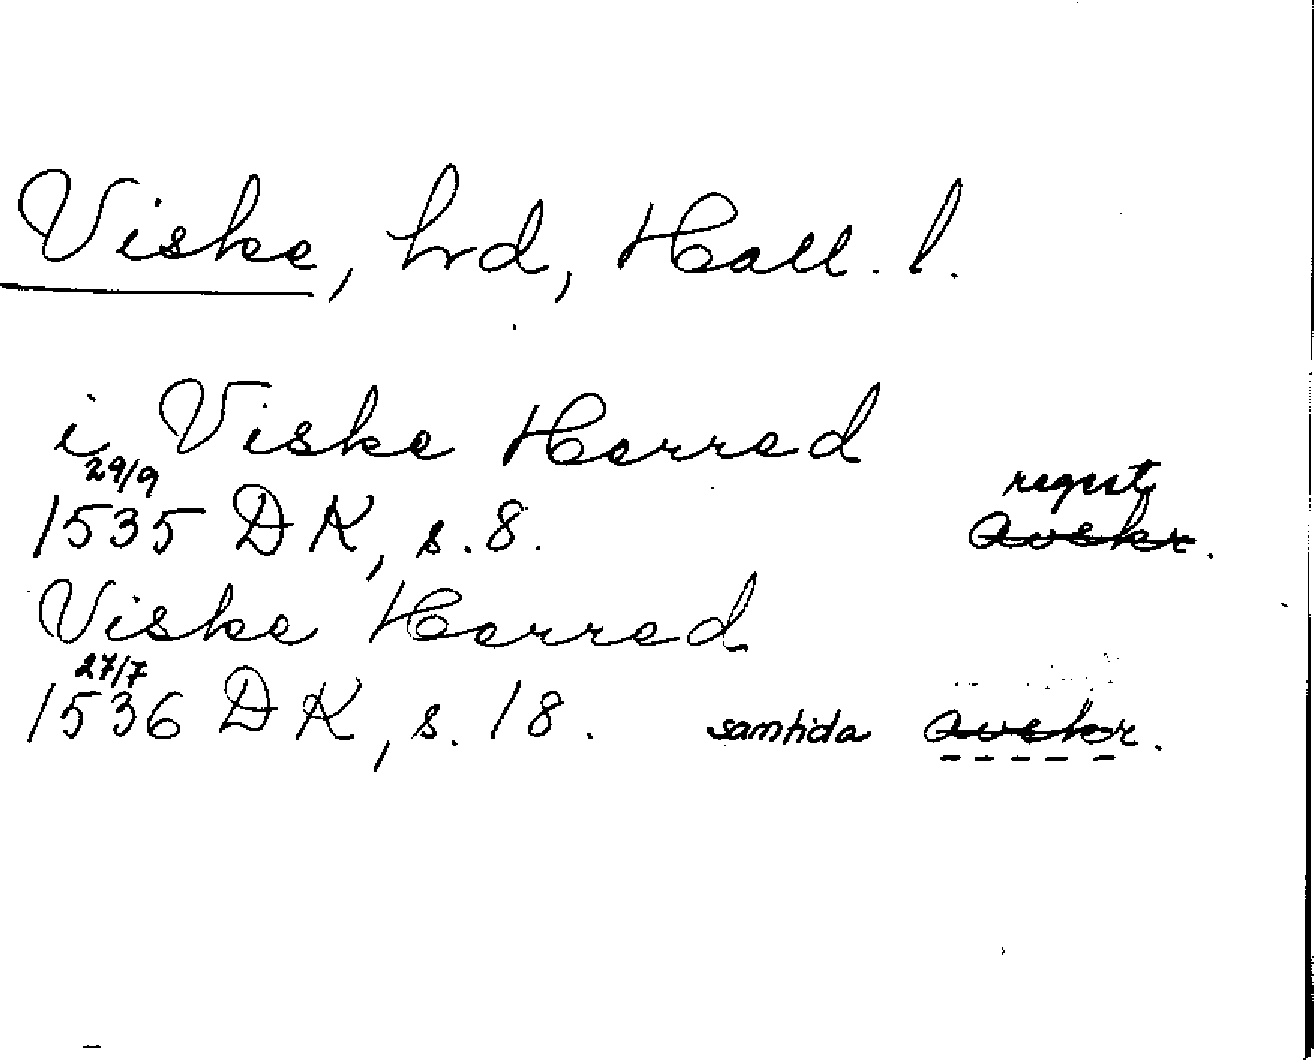 Viske, hrd, Hall. l.
i Viske Herred
29/9 regest
1535 DK, s. 8. avskr.
Viske Herred
27/7
1536 DK, s. 18. samtida avskr.